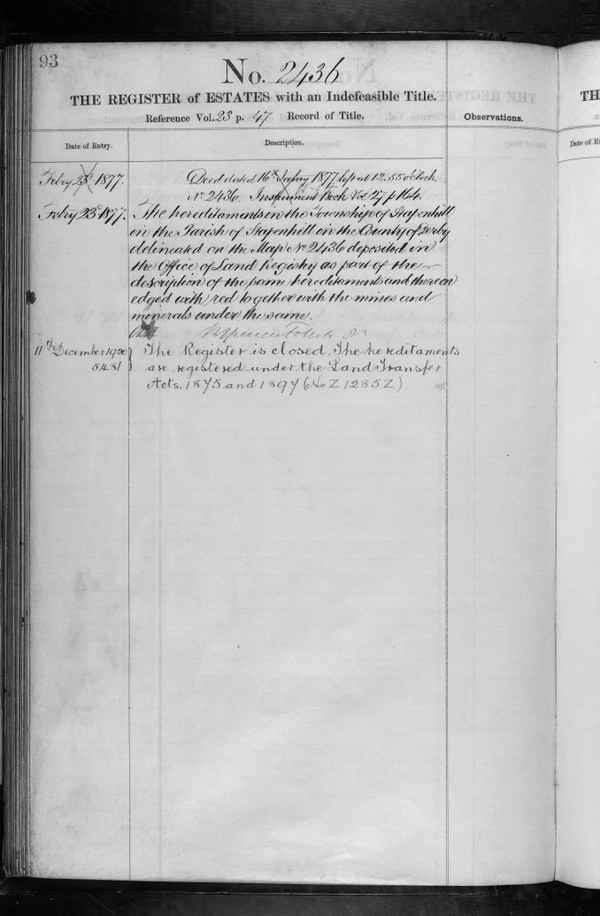 93
No. 2436
THE REGISTER of ESTATES with an Indefeasible Title.
Reference Vol. 23 p. 47 Record of Title.
Observations.
Date of Entry.
Description.
Febry 23d 1877.
Deed dated 16th Janry 1877 left at 12.55 o'clock
No 2436. Instrument Book Vol 27 p 164.
Febry 23d 1877.
The hereditaments in the Township of Stapenhill
in the Parish of Stapenhill in the County of Derby
delineated on the Map No 2436 deposited in
the Office of Land Registry as part of the
description of the same hereditaments and thereon
edged with red together with the mines and
minerals under the same.
11th December 1920
The Register is closed. The hereditaments
are registered under the Land Transfer
Acts, 1875 and 1897 (No Z 12852)
TH
Date of E